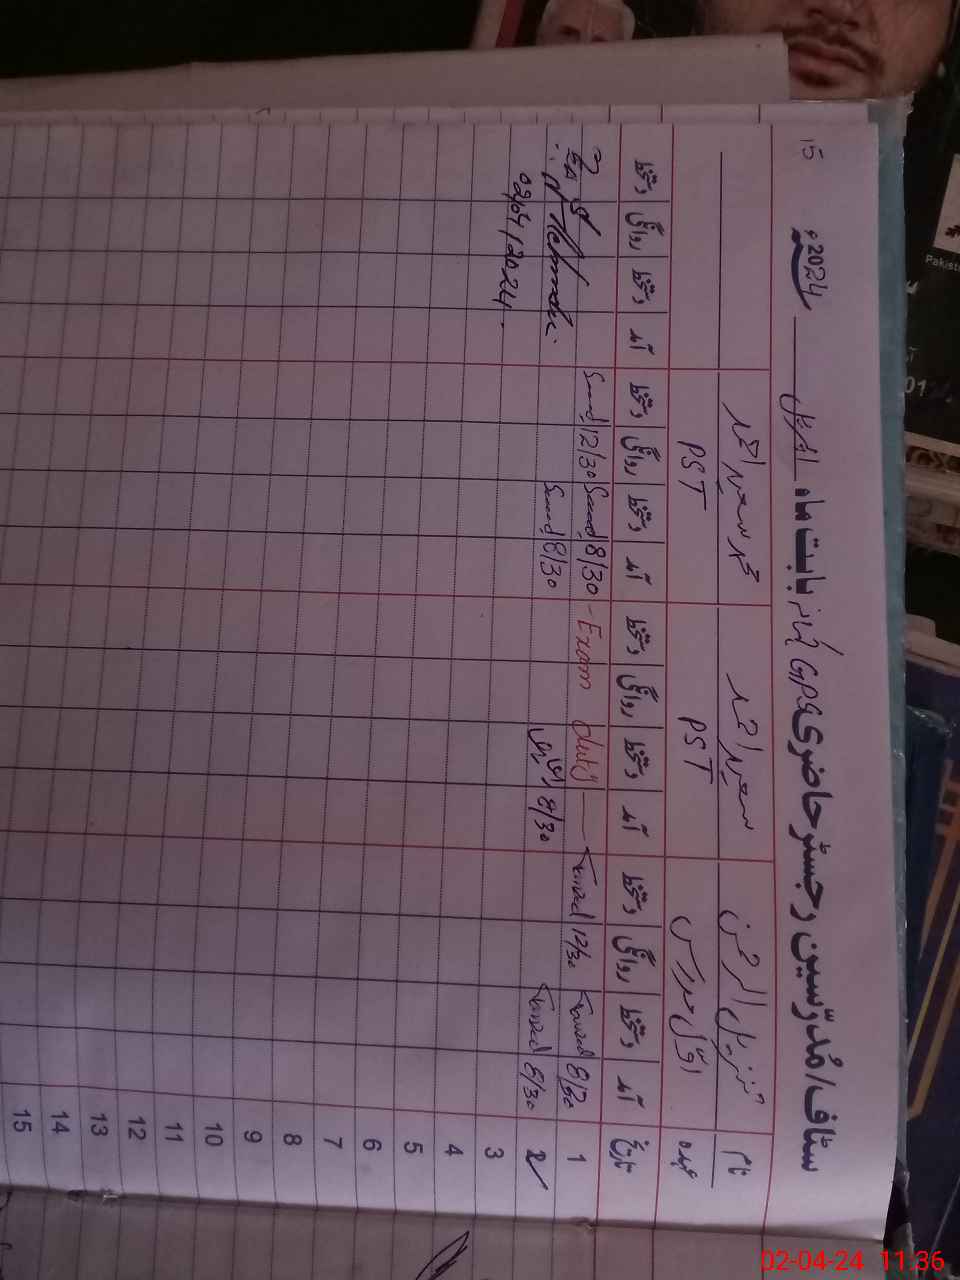 15
سٹاف/مُدرّسین رجسٹر حاضری GPS بابت ماہ اپریل 2024ء
نام تنزیل الرحمن سعید احمد محمد سعید احمد
عہدہ اوّل مدرس PST PST
تاریخ آمد دستخط روانگی دستخط آمد دستخط روانگی دستخط آمد دستخط روانگی دستخط آمد دستخط روانگی دستخط
1 8/30 12/30 - Exam duty - 8/30 Saeed 12/30 Saeed
2 8/30 8/30 8/30 Saeed
02/04/2024.
3
4
5
6
7
8
9
10
11
12
13
14
15
Pakist
01
02-04-24 11:36